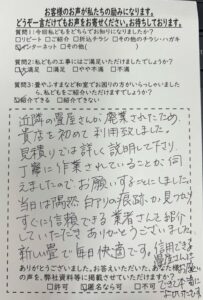 お客様のお声が私たちの励みになります。
どうぞ一言だけでもお声をお寄せください。お待ちしております。
質問1:今回私どもをどちらでお知りになりましたか?
□リピート □ご紹介 □折込チラシ □その他のチラシ・ハガキ
☑インターネット □その他( )
質問2:私どもの工事にはご満足いただけましたでしょうか?
☑大満足 □満足 □やや不満 □不満
質問3:畳やふすまなど和室でお困りの方がいらっしゃいましたら、私どもをご紹介いただけますでしょうか?
☑紹介できる □紹介できない
近隣の畳屋さんが廃業されたため、
貴店を初めて利用致しました。
見積りでは詳しく説明して下さり
丁寧に作業されていることが伺
えましたのでお願いすることにしました。
当日は偶然白アリの痕跡の見つかり
すぐに信頼できる業者さんを紹介
していただきありがとうございました。
新しい畳で毎日快適です。信用できる
畳屋さんに
お願い
でき本当に
よかったです
ありがとうございました。お答えいただいた、あなた様
の声を、弊社資料等に掲載させていただけますか?
□許可 ☑匿名なら可 □不可